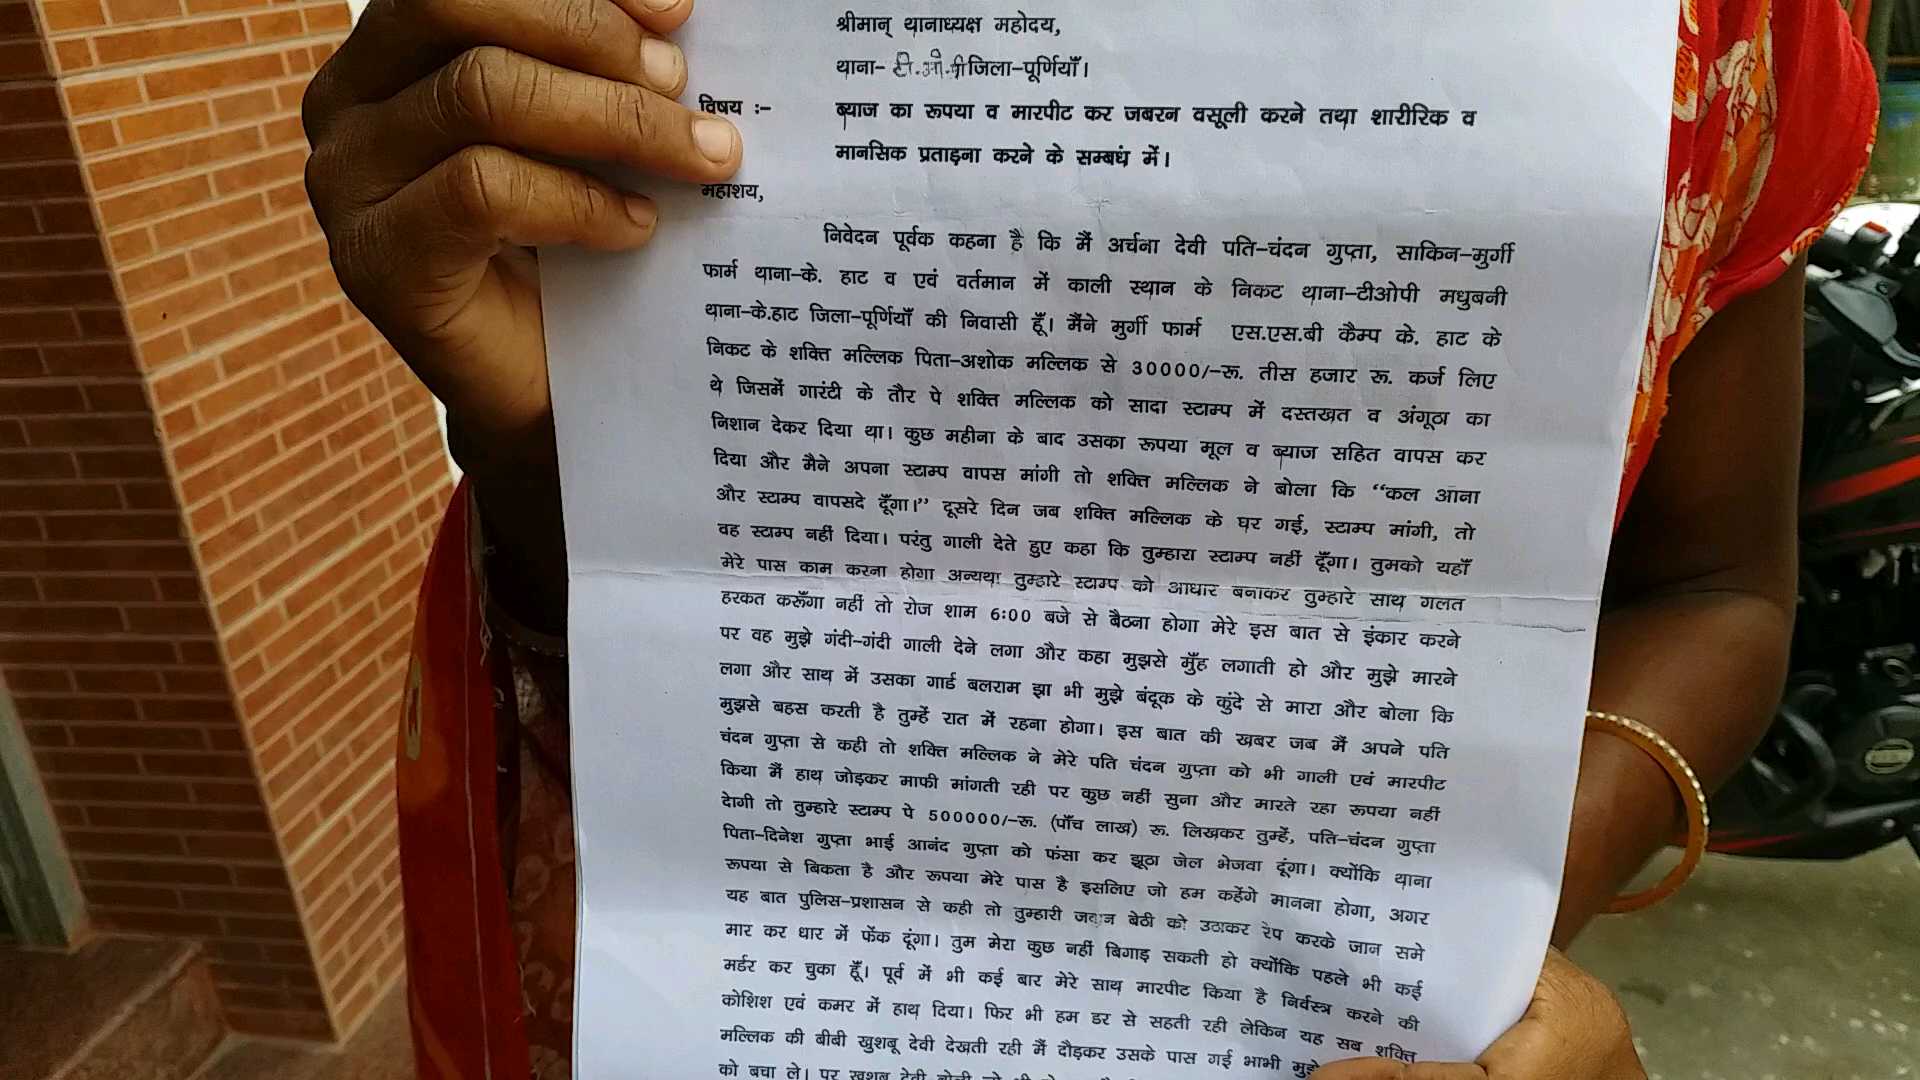 श्रीमान् थानाध्यक्ष महोदय,
थाना- टी.ओ.पी जिला-पूर्णियाँ।
विषय :- ब्याज का रूपया व मारपीट कर जबरन वसूली करने तथा शारीरिक व
मानसिक प्रताड़ना करने के सम्बधं में।
महाशय,
निवेदन पूर्वक कहना है कि मैं अर्चना देवी पति-चंदन गुप्ता, साकिन-मुर्गी
फार्म थाना-के. हाट व एवं वर्तमान में काली स्थान के निकट थाना-टीओपी मधुबनी
थाना-के.हाट जिला-पूर्णियाँ की निवासी हूँ। मैंने मुर्गी फार्म एस.एस.बी कैम्प के. हाट के
निकट के शक्ति मल्लिक पिता-अशोक मल्लिक से 30000/-रू. तीस हजार रू. कर्ज लिए
थे जिसमें गारंटी के तौर पे शक्ति मल्लिक को सादा स्टाम्प में दस्तखत व अंगूठा का
निशान देकर दिया था। कुछ महीना के बाद उसका रूपया मूल व ब्याज सहित वापस कर
दिया और मैने अपना स्टाम्प वापस मांगी तो शक्ति मल्लिक ने बोला कि “कल आना
और स्टाम्प वापसदे दूँगा।” दूसरे दिन जब शक्ति मल्लिक के घर गई, स्टाम्प मांगी, तो
वह स्टाम्प नहीं दिया। परंतु गाली देते हुए कहा कि तुम्हारा स्टाम्प नहीं दूँगा। तुमको यहाँ
मेरे पास काम करना होगा अन्यथा तुम्हारे स्टाम्प को आधार बनाकर तुम्हारे साथ गलत
हरकत करूँगा नहीं तो रोज शाम 6:00 बजे से बैठना होगा मेरे इस बात से इंकार करने
पर वह मुझे गंदी-गंदी गाली देने लगा और कहा मुझसे मुँह लगाती हो और मुझे मारने
लगा और साथ में उसका गार्ड बलराम झा भी मुझे बंदूक के कुंदे से मारा और बोला कि
मुझसे बहस करती है तुम्हें रात में रहना होगा। इस बात की खबर जब मैं अपने पति
चंदन गुप्ता से कही तो शक्ति मल्लिक ने मेरे पति चंदन गुप्ता को भी गाली एवं मारपीट
किया मैं हाथ जोड़कर माफी मांगती रही पर कुछ नहीं सुना और मारते रहा रूपया नहीं
देागी तो तुम्हारे स्टाम्प पे 500000/-रू. (पाँच लाख) रू. लिखकर तुम्हें, पति-चंदन गुप्ता
पिता-दिनेश गुप्ता भाई आनंद गुप्ता को फंसा कर झूठा जेल भेजवा दूंगा। क्योंकि थाना
रूपया से बिकता है और रूपया मेरे पास है इसलिए जो हम कहेंगे मानना होगा, अगर
यह बात पुलिस-प्रशासन से कही तो तुम्हारी जवान बेठी को उठाकर रेप करके जान समे
मार कर धार में फेंक दूंगा। तुम मेरा कुछ नहीं बिगाड़ सकती हो क्योंकि पहले भी कई
मर्डर कर चुका हूँ। पूर्व में भी कई बार मेरे साथ मारपीट किया है निर्वस्त्र करने की
कोशिश एवं कमर में हाथ दिया। फिर भी हम डर से सहती रही लेकिन यह सब शक्ति
मल्लिक की बीबी खुशबू देवी देखती रही मैं दौड़कर उसके पास गई भाभी मुझे
को बचा ले। पर खुशबू देवी बोली